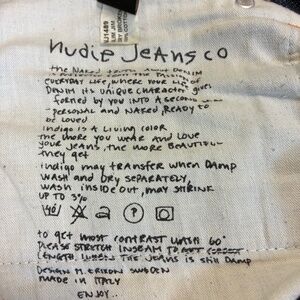 nudie Jeans co
the Naked truth about DENIM
is
EVERYDAY LIFE, where your
DENIM its UNIQUE CHARACTER, gives
formed by you into a second
PERSONAL and NAKED, READY to
be loved
Indigo is a LIVING COLOR
the more you wear and Love
your jeans, the more BEAUTIFUL
they get
indigo may transfer when DAMP
WASH and DRY SEPARATELY,
WASH INSIDE OUT, MAY SHRINK
UP to 3%
40
to get most contrast wash 60°
PLEASE STRETCH INSEAM to get
LENGTH. WHEN the JEANS is still DAMP
DESIGN M. ERIXON SWEDEN
MADE in ITALY
ENJOY..